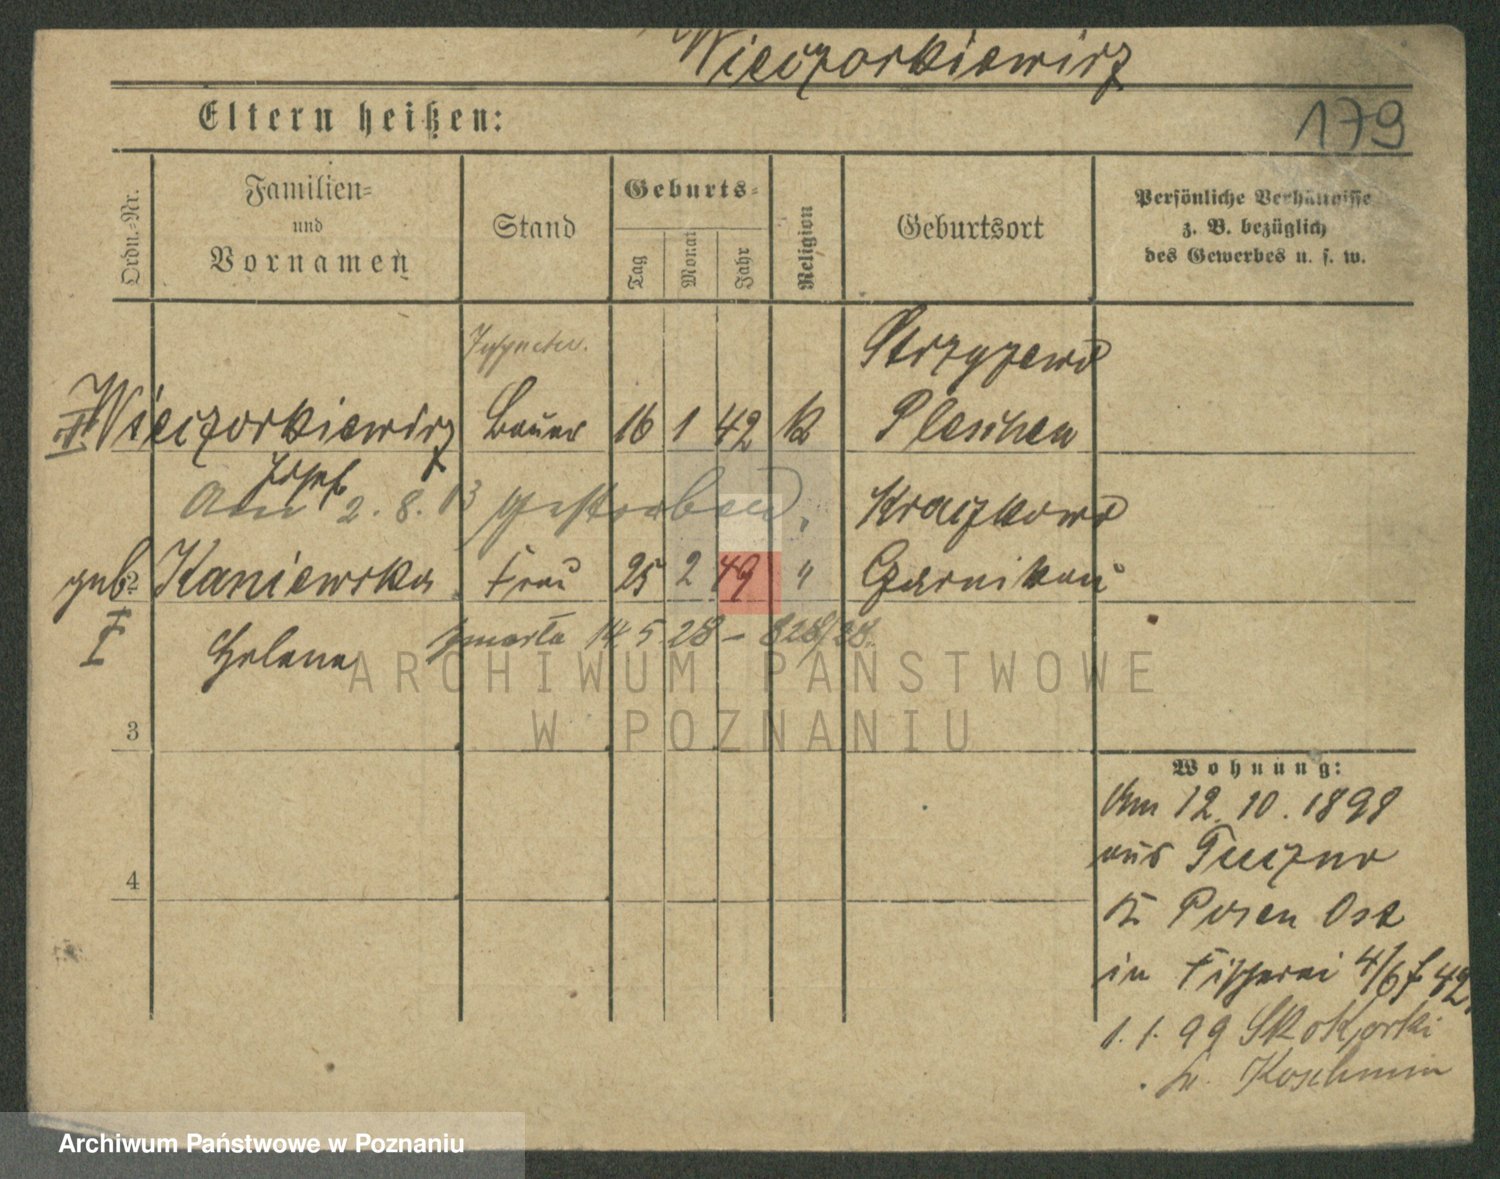 Wieczorkiewicz
179
Eltern heißen:
Ordn.-Nr.
Familien-
und
Vornamen
Stand
Geburts-
Tag
Monat
Jahr
Religion
Geburtsort
Persönliche Verhältnisse
z. B. bezüglich
des Gewerbes u. s. w.
Strzyzewo
II Wieczorkiewicz Bauer 16 1 42 k Pleschen
Josef
Am 2. 8. 03 gestorben.
Kraczkowo
geb. 2 Kaniewska Frau 25 2 49 " Czarnikau
I
Helena zmarła 14 5 28 - 828/28.
ARCHIWUM PAŃSTWOWE
W POZNANIU
3
Wohnung:
Am 12. 10. 1898
aus Tuczno
K. Posen Ost
in Fischerei 4/6 42.
4
1. 1. 99
Koschmin
Archiwum Państwowe w Poznaniu